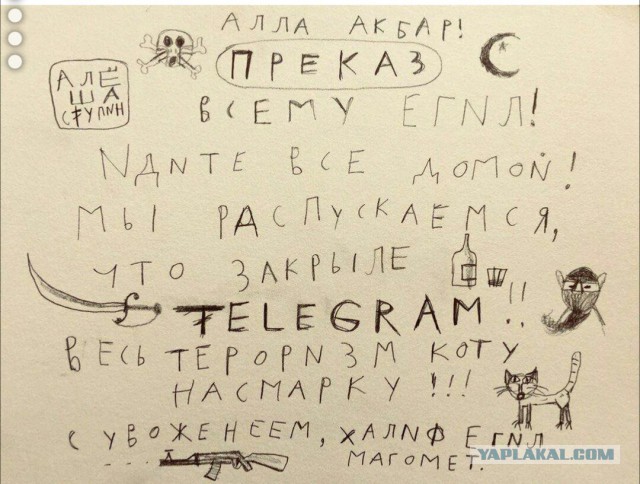 АЛЛА АКБАР!
ПРЕКАЗ
АЛЁ
ША
СТУПИН
ВСЕМУ ЕГИЛ!
ИДИТЕ ВСЕ ДОМОЙ!
МЫ РАСПУСКАЕМСЯ,
ЧТО ЗАКРЫЛЕ
TELEGRAM!!
ВЕСЬ ТЕРОРИЗМ КОТУ
НАСМАРКУ!!!
С УВОЖЕНЕЕМ, ХАЛИФ ЕГИЛ
МАГОМЕТ.
YAPLAKAL.COM